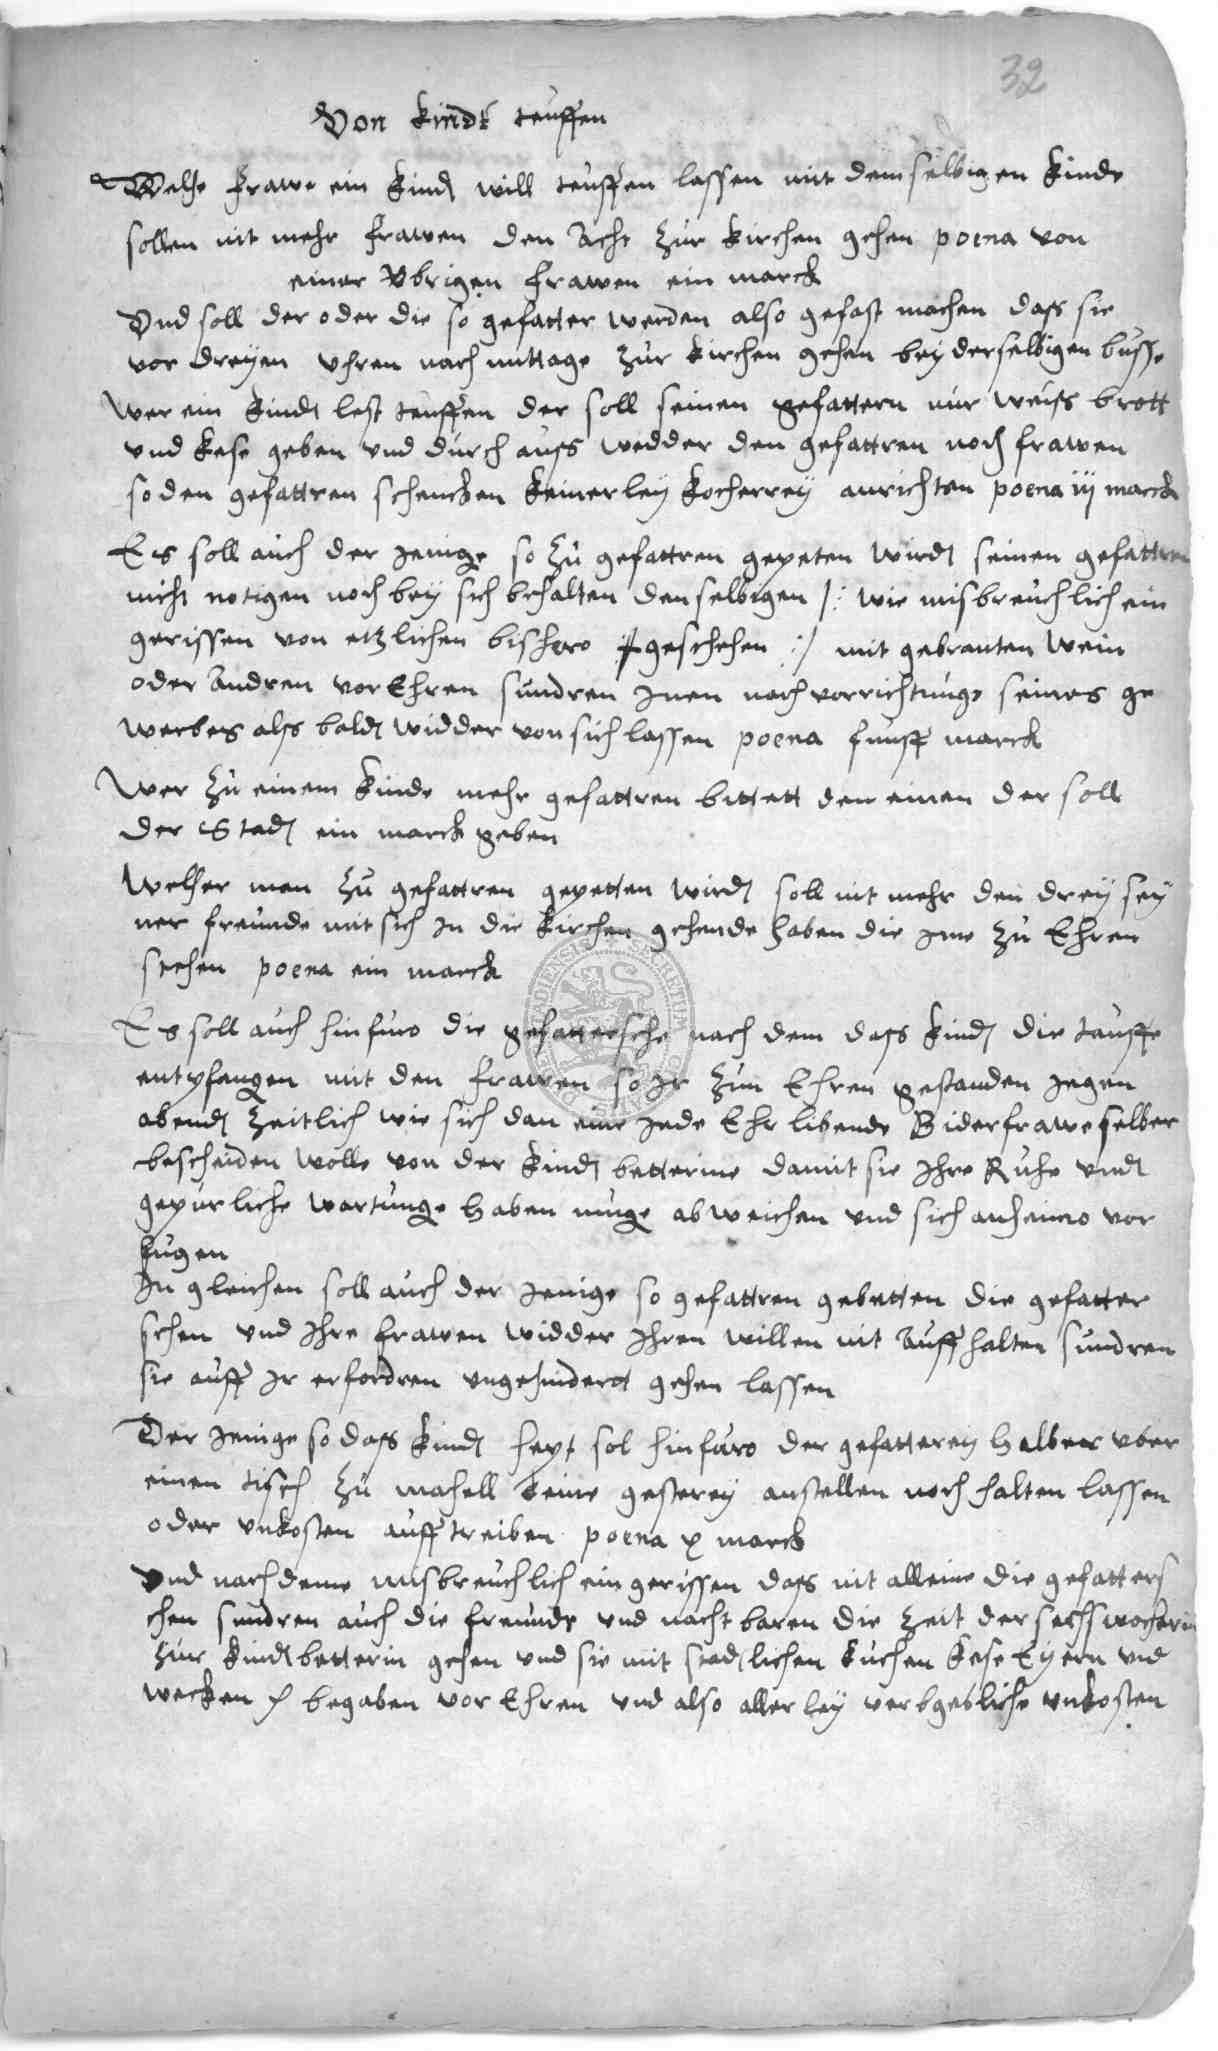 32
Von kindt teuffen
Welche frawe ein kindt will teuffen lassen mit dem selbigen kinde
sollen nit mehr frawen den Acht zur kirchen gehen poena von
einer Vbrigen frawen ein marck
Vnd soll der oder die so gefatter werden also gefast machen dass sie
vor dreyen vhren nach mittage zur kirchen gehen bey derselbigen busse
Wer ein kindt lest teuffen der soll seinen gefattern nur weiss brott
vnd kese geben vnd durch auss wedder den gefattren noch frawen
so den gefattren schencken keinerley kocherrey anrichten poena iij marck
Es soll auch der jenige so zu gefattren gepeten wirdt seinen gefattren
nicht notigen noch bey sich behalten denselbigen /: wie misbreuchlich ein
gerissen von etzlichen bishero geschehen :/ mit gebranten wein
oder Andren vor Ehren sundren Inen nach vorrichtunge seines ge
werbes alss baldt widder von sich lassen poena funff marck
Wer zu einem kinde mehr gefattren bittett den einen der soll
der Stadt ein marck geben
Welcher man zu gefattren gepetten wirdt soll nit mehr den drey sey
ner freunde mit sich In die kirchen gehende haben die Ime zu Ehren
stehen poena ein marck
Es soll auch hinfuro die gefattersche nach dem dass kindt die tauffe
entpfangen mit den frawen so Ir zun Ehren gestanden Jegen
abendt zeitlich wie sich dan eine Jede Ehr libende Biderfrawe selber
bescheiden wolle von der kindt betterine damit sie Ihre Ruhe vndt
gepurliche wartunge haben muge abweichen vnd sich anheimo vor
fugen
In gleichen soll auch der Jenige so gefattren gebetten die gefatter
schen vnd Ihre frawen widder Ihren willen nit Auffhalten sundren
sie auff Ir erfordren vngehindertt gehen lassen
Der Jenige so dass kindt hept sol hinfuro der gefatterey halber vber
einen tisch zu mahell keine gesterey anstellen noch halten lassen
oder vnkosten aufftreiben poena x marck
Vnd nachdeme misbreuchlich ein gerissen dass nit alleine die gefatters
chen sundren auch die freunde vnd nachtbaren die zeit der sechswocherin
zur kindtbetterin gehen vnd sie mit stadtlichen kuchen kese Eyern vnd
wecken begaben vor Ehren vnd also allerley vorbgebliche vnkosten